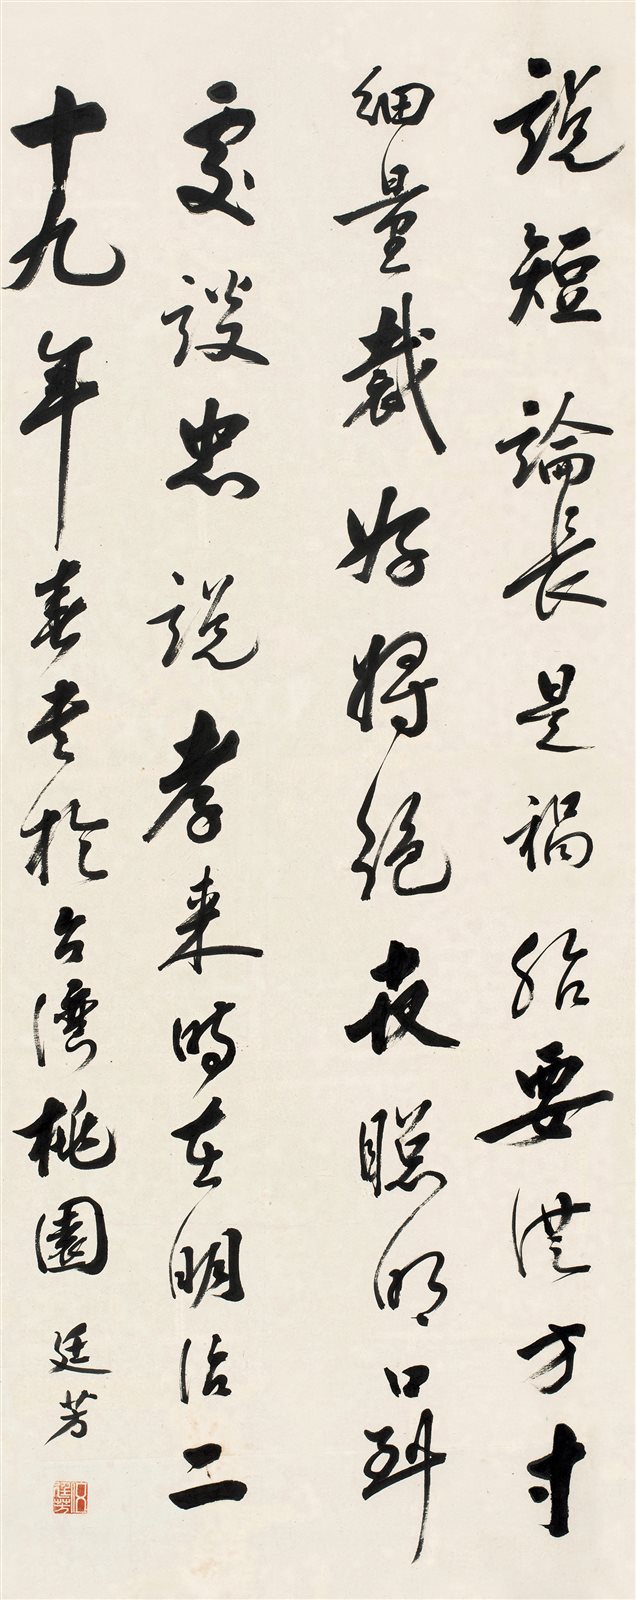 說短論長是禍胎要從方寸
細量裁好將絕聰明口到
處談忠說孝來時在明治二
十九年春書於台灣桃園 廷芳